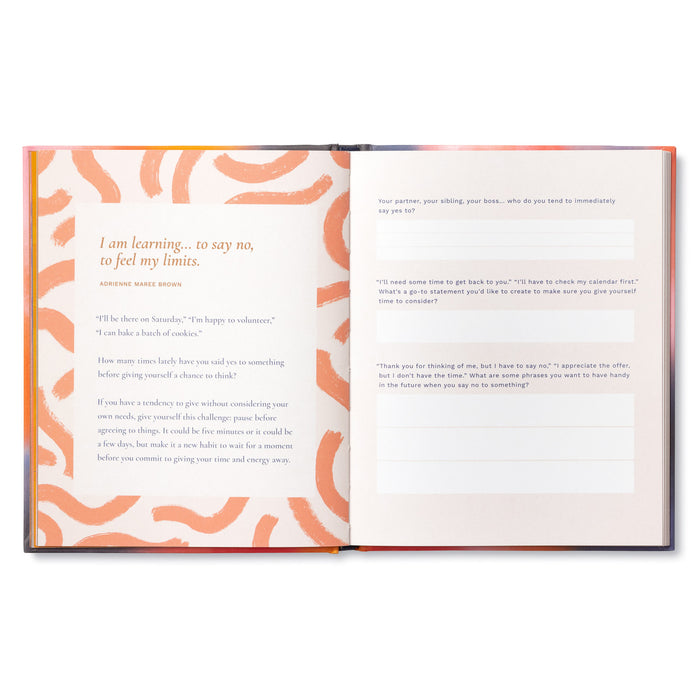 I am learning... to say no,
to feel my limits.
ADRIENNE MAREE BROWN
“I’ll be there on Saturday,” “I’m happy to volunteer,”
“I can bake a batch of cookies.”
How many times lately have you said yes to something
before giving yourself a chance to think?
If you have a tendency to give without considering your
own needs, give yourself this challenge: pause before
agreeing to things. It could be five minutes or it could be
a few days, but make it a new habit to wait for a moment
before you commit to giving your time and energy away.
Your partner, your sibling, your boss... who do you tend to immediately
say yes to?
“I’ll need some time to get back to you.” “I’ll have to check my calendar first.”
What’s a go-to statement you’d like to create to make sure you give yourself
time to consider?
“Thank you for thinking of me, but I have to say no,” “I appreciate the offer,
but I don’t have the time.” What are some phrases you want to have handy
in the future when you say no to something?